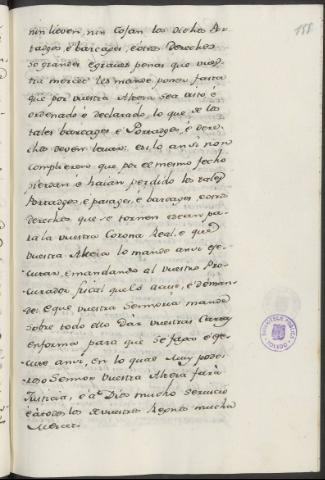 188
nin lieven, nin cojan los dichos Por
tadgos é barcages, é otros derechos
so grandes é graves penas que vues
tra merced les mande poner fasta
que por vuestra Alteza sea visto é
ordenado é declarado, lo que de los
tales barcages é Portadges, é dere
chos deven levar. é si lo ansi non
complieren que por el mesmo fecho
pierdan é haian perdido los tales
Portadges, é pasages, é barcages, é otros
derechos que se tornen é sean pa
ra la vuestra Corona Real, é que
vuestra Alteza lo mande ansi ege
cutar, é mandando al vuestro Pro
curador fiscal que los acuse, é deman
de: é que vuestra Señoria mande
sobre todo ello dár vuestras Cartas
en forma para que se faga é ege
cute ansi, en lo qual muy pode
roso Sennor vuestra Alteza fará
Justicia, é á Dios mucho servicio
é á todos los de vuestros Regnos mucha
Merced.
BIBLIOTECA PUBLICA
TOLEDO